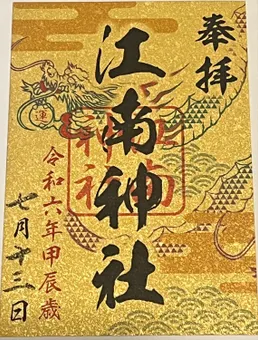 奉拝
江南神社
江南
神社
運
令和六年甲辰歳
七月十三日